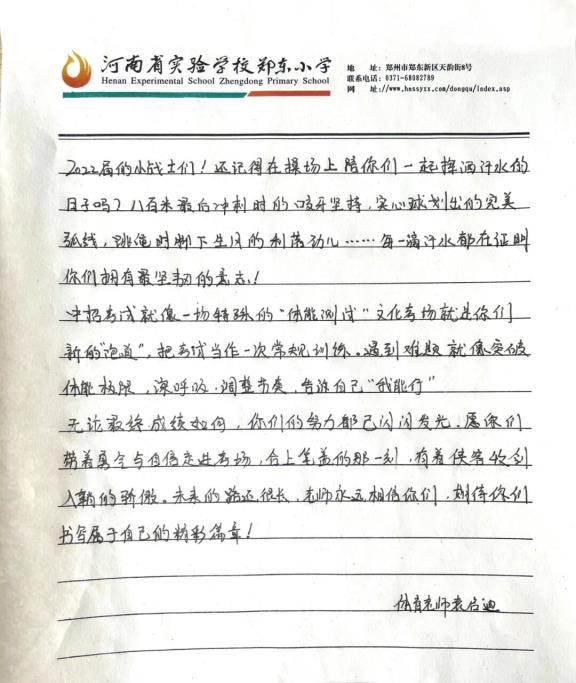 河南省实验学校郑东小学
Henan Experimental School Zhengdong Primary School
地 址：郑州市郑东新区天韵街8号
联系电话：0371-68082789
网 址://www.hnssyxx.com/dongqu/index.asp
2022届的小战士们！还记得在操场上陪你们一起挥洒汗水的
日子吗？八百米最后冲刺时的咬牙坚持，实心球划出的完美
弧线，跳绳时脚下生风的利落劲儿……每一滴汗水都在证明
你们拥有最坚韧的意志！
中招考试就像一场特殊的“体能测试”文化考场就是你们
新的“跑道”，把考试当作一次常规训练。遇到难题就像突破
体能极限，深呼吸·调整节奏，告诉自己“我能行”
无论最终成绩如何，你们的努力都已闪闪发光。愿你们
带着勇气与自信走进考场，合上笔盖的那一刻，有着侠客收剑
入鞘的骄傲。未来的路还很长，老师永远相信你们，期待你们
书写属于自己的精彩篇章！
体育老师袁启迪